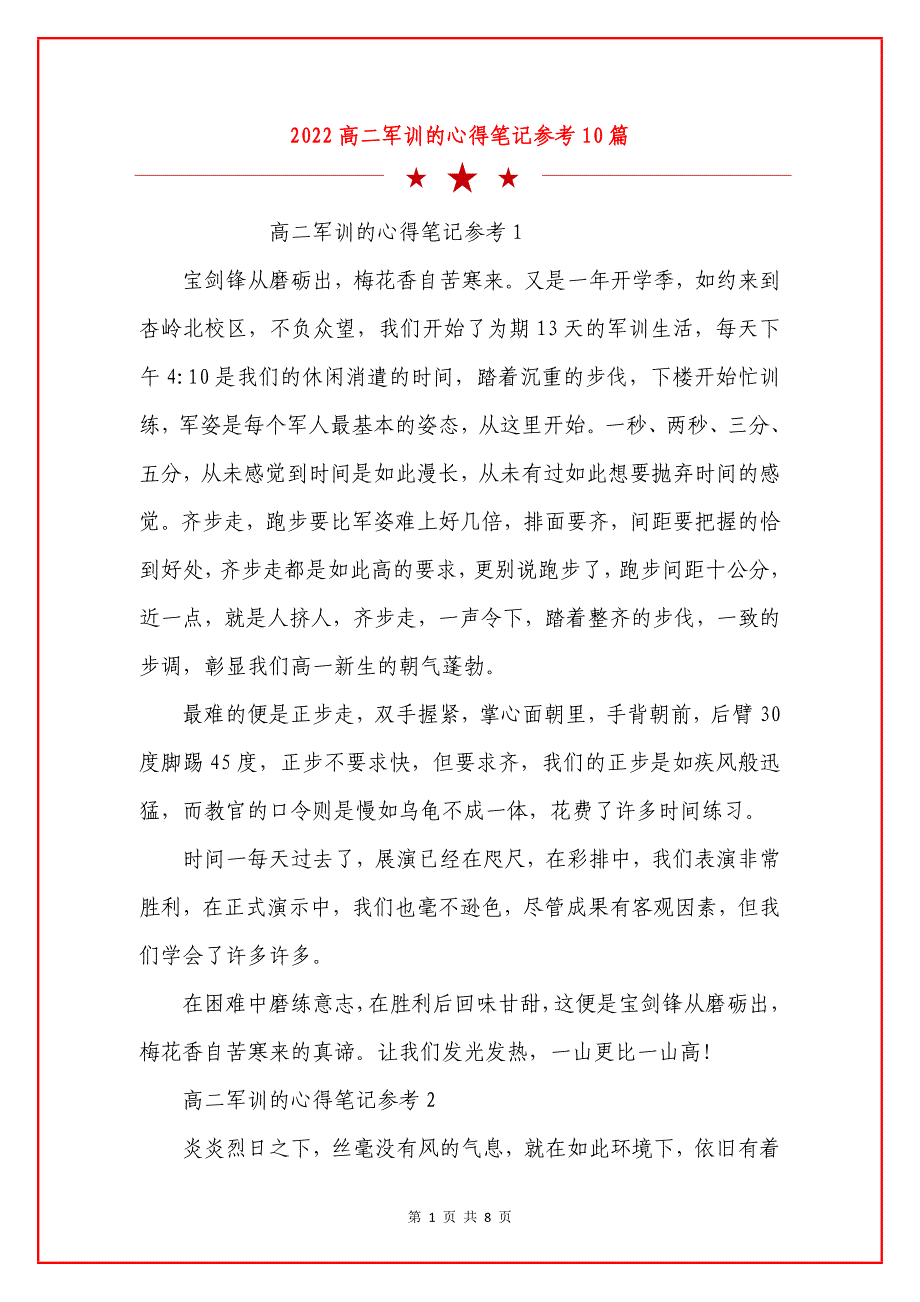 2022高二军训的心得笔记参考10篇
高二军训的心得笔记参考1
宝剑锋从磨砺出，梅花香自苦寒来。又是一年开学季，如约来到
杏岭北校区，不负众望，我们开始了为期13天的军训生活，每天下
午4:10是我们的休闲消遣的时间，踏着沉重的步伐，下楼开始忙训
练，军姿是每个军人最基本的姿态，从这里开始。一秒、两秒、三分、
五分，从未感觉到时间是如此漫长，从未有过如此想要抛弃时间的感
觉。齐步走，跑步要比军姿难上好几倍，排面要齐，间距要把握的恰
到好处，齐步走都是如此高的要求，更别说跑步了，跑步间距十公分，
近一点，就是人挤人，齐步走，一声令下，踏着整齐的步伐，一致的
步调，彰显我们高一新生的朝气蓬勃。
最难的便是正步走，双手握紧，掌心面朝里，手背朝前，后臂30
度脚踢45度，正步不要求快，但要求齐，我们的正步是如疾风般迅
猛，而教官的口令则是慢如乌龟不成一体，花费了许多时间练习。
时间一每天过去了，展演已经在咫尺，在彩排中，我们表演非常
胜利，在正式演示中，我们也毫不逊色，尽管成果有客观因素，但我
们学会了许多许多。
在困难中磨练意志，在胜利后回味甘甜，这便是宝剑锋从磨砺出，
梅花香自苦寒来的真谛。让我们发光发热，一山更比一山高！
高二军训的心得笔记参考2
炎炎烈日之下，丝毫没有风的气息，就在如此环境下，依旧有着
第 1 页 共 8 页